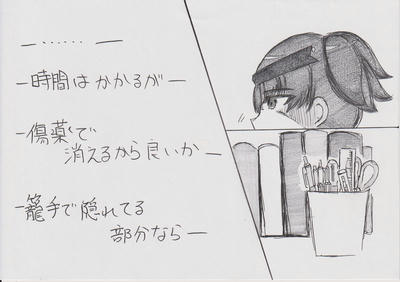 ―……―
―時間はかかるが―
―傷薬で
消えるから良いか―
―籠手で隠れてる
部分なら―